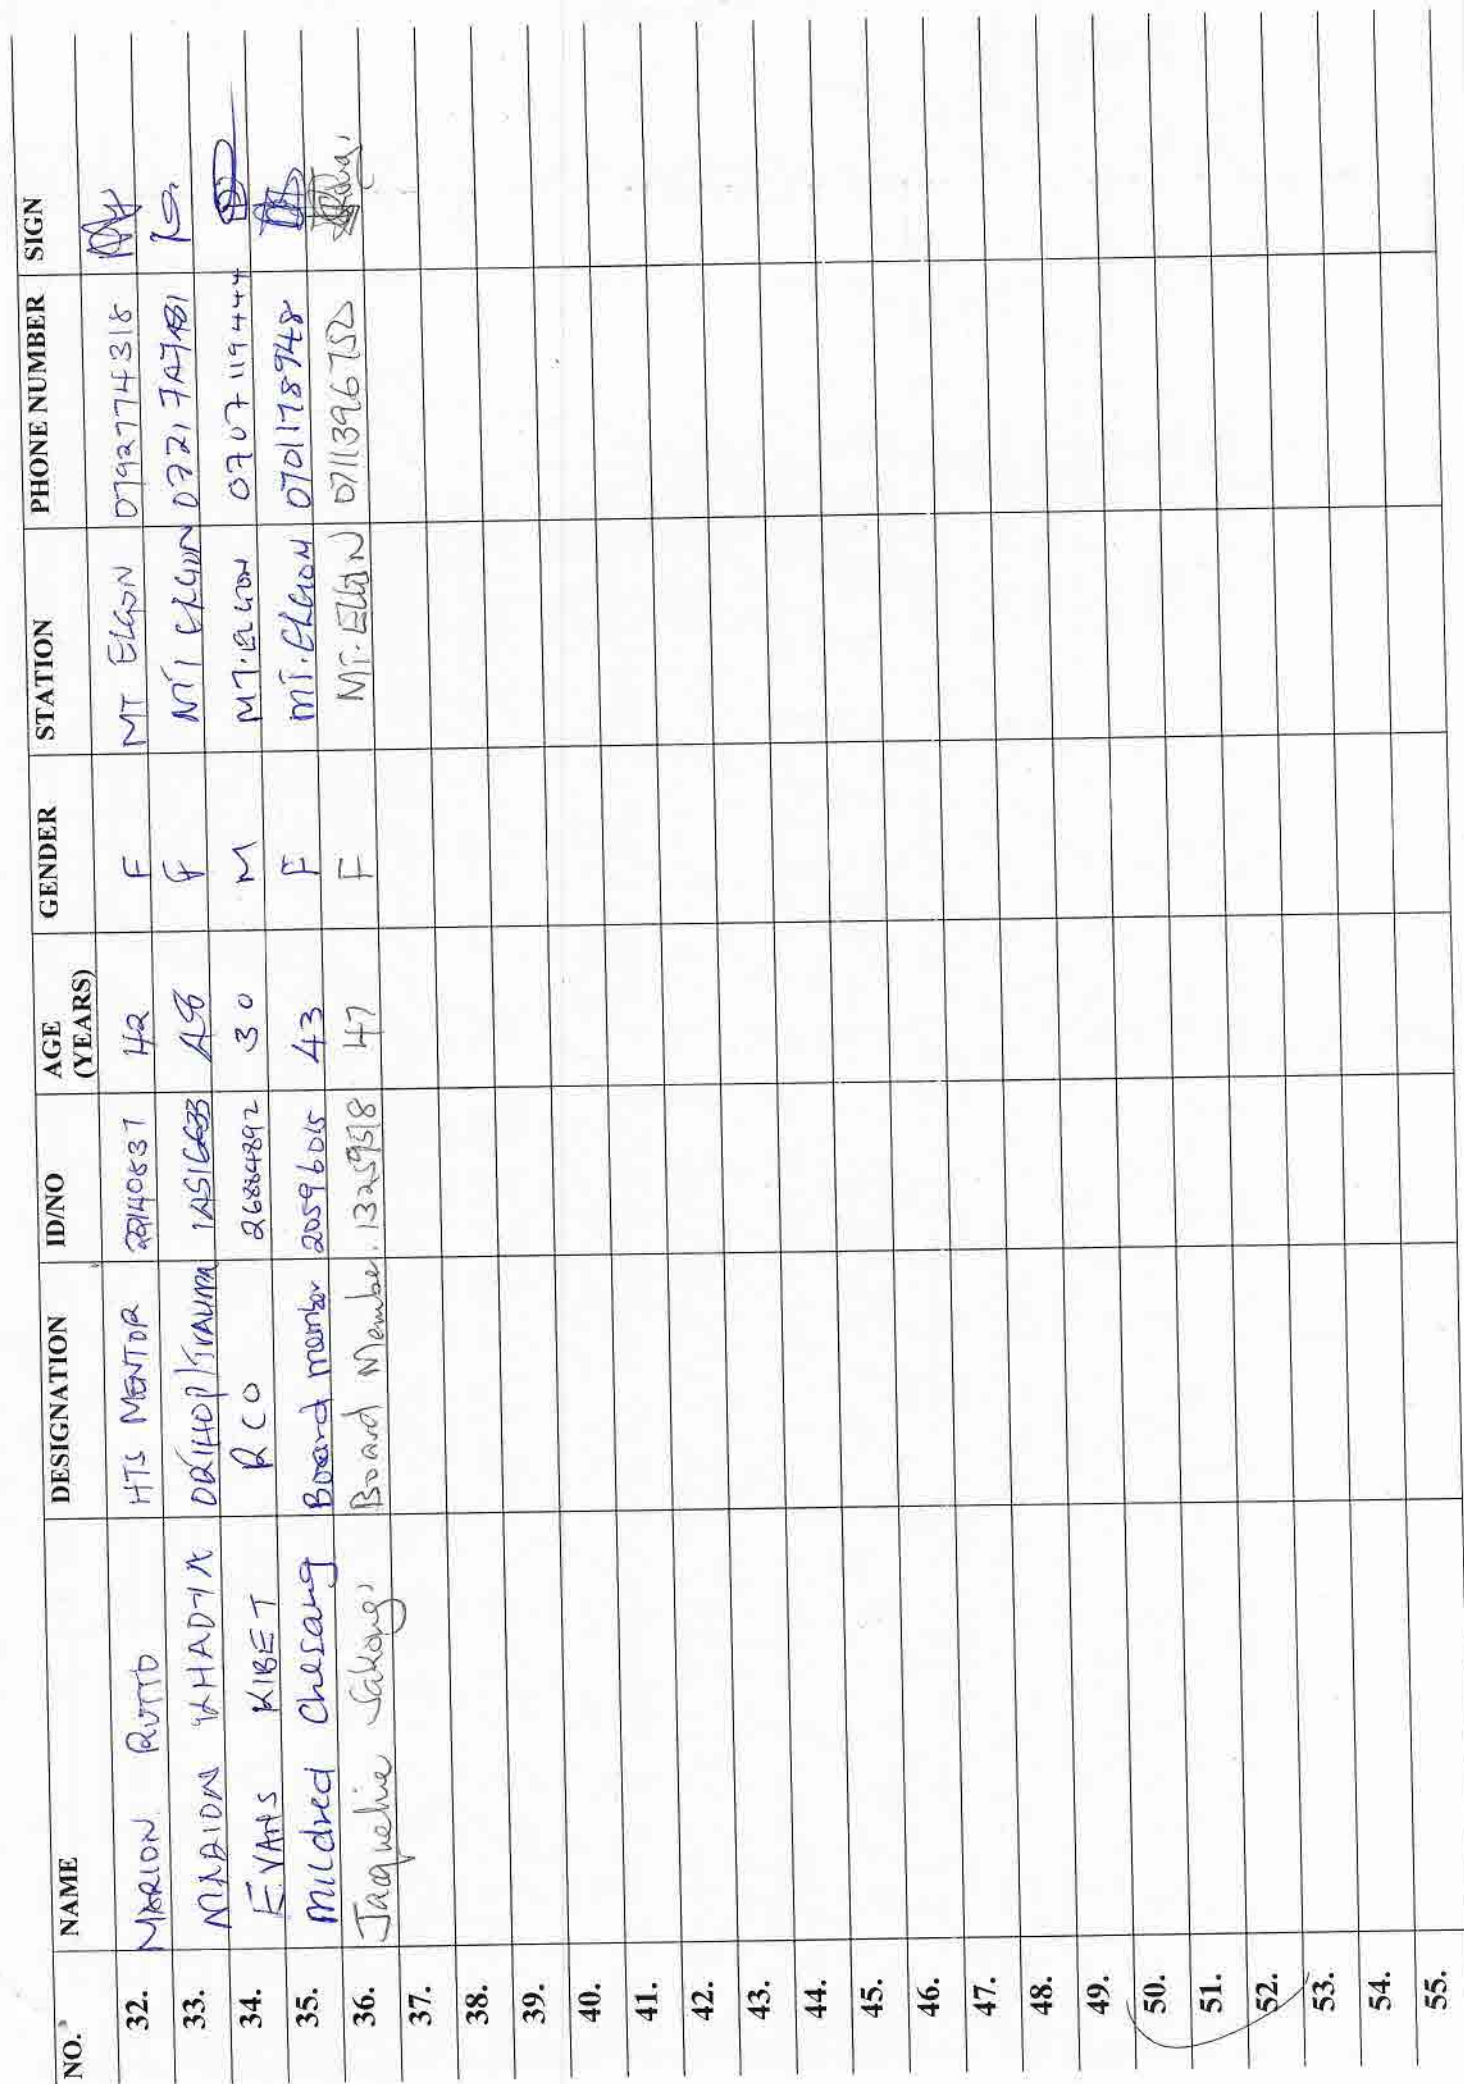 NO. NAME DESIGNATION ID/NO AGE (YEARS) GENDER STATION PHONE NUMBER SIGN
32. MARION RUTTO HTS MENTOR 42 F MT ELGON 0792774318
33. MARION KHADIA ORTHOP/TRAUMA F MT ELGON
34. EVANS KIBET RCO 26864892 30 M MT. ELGON 0707119444
35. Mildred Chesang Board member 20596015 43 F MT. ELGON 0701178948
36. Jaqueline Sakong' Board Member. 13259518 47 F MT. ELGON 0711396752
37.
38.
39.
40.
41.
42.
43.
44.
45.
46.
47.
48.
49.
50.
51.
52.
53.
54.
55.